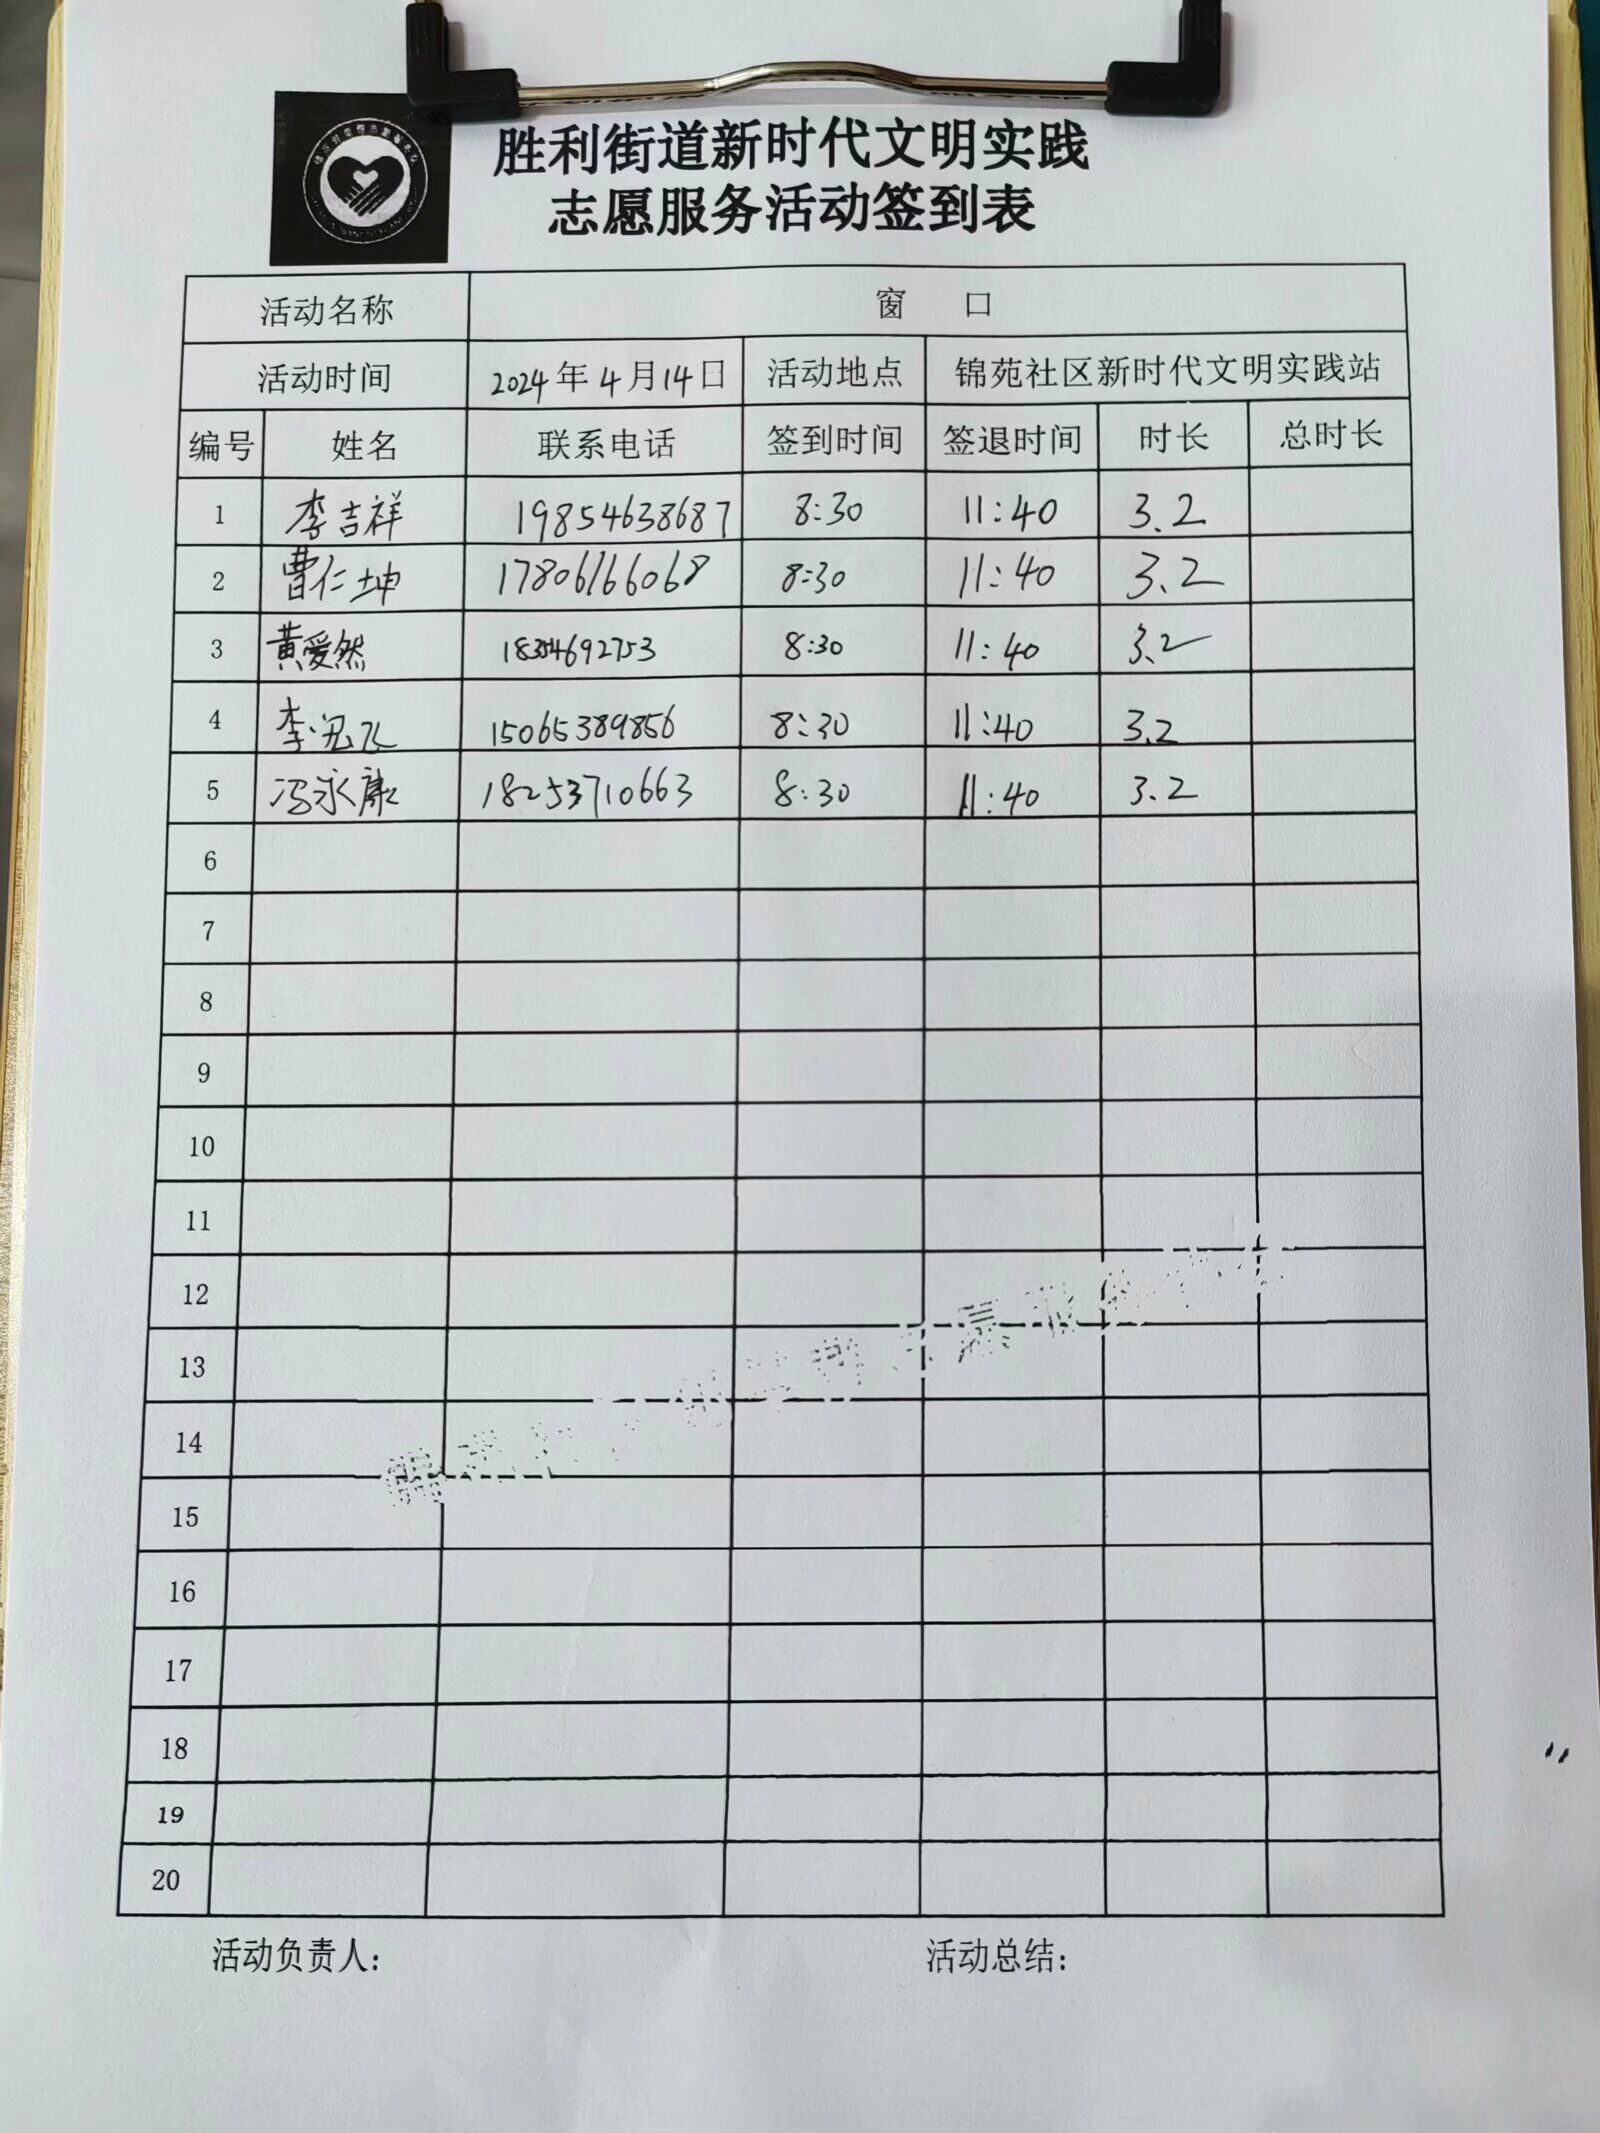 胜利街道新时代文明实践
志愿服务活动签到表
活动名称 窗 口
活动时间 2024年4月14日 活动地点 锦苑社区新时代文明实践站
编号 姓名 联系电话 签到时间 签退时间 时长 总时长
1 李吉祥 19854638687 8:30 11:40 3.2
2 曹仁坤 17806166068 8:30 11:40 3.2
3 黄爱然 18354692753 8:30 11:40 3.2
4 15065389856 8:30 11:40 3.2
5 冯永康 18253710663 8:30 11:40 3.2
6
7
8
9
10
11
12
13
14
15
16
17
18
19
20
活动负责人: 活动总结: